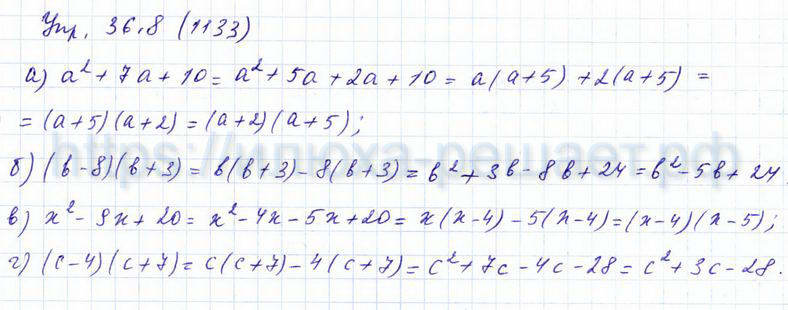 Упр. 36.8 (1133)
а) a² + 7a + 10 = a² + 5a + 2a + 10 = a(a+5) + 2(a+5) =
= (a+5)(a+2) = (a+2)(a+5);
https://илюха-решает.рф
б) (b-8)(b+3) = b(b+3) - 8(b+3) = b² + 3b - 8b + 24 = b² - 5b + 24.
в) x² - 9x + 20 = x² - 4x - 5x + 20 = x(x-4) - 5(x-4) = (x-4)(x-5);
г) (c-4)(c+7) = c(c+7) - 4(c+7) = c² + 7c - 4c - 28 = c² + 3c - 28.